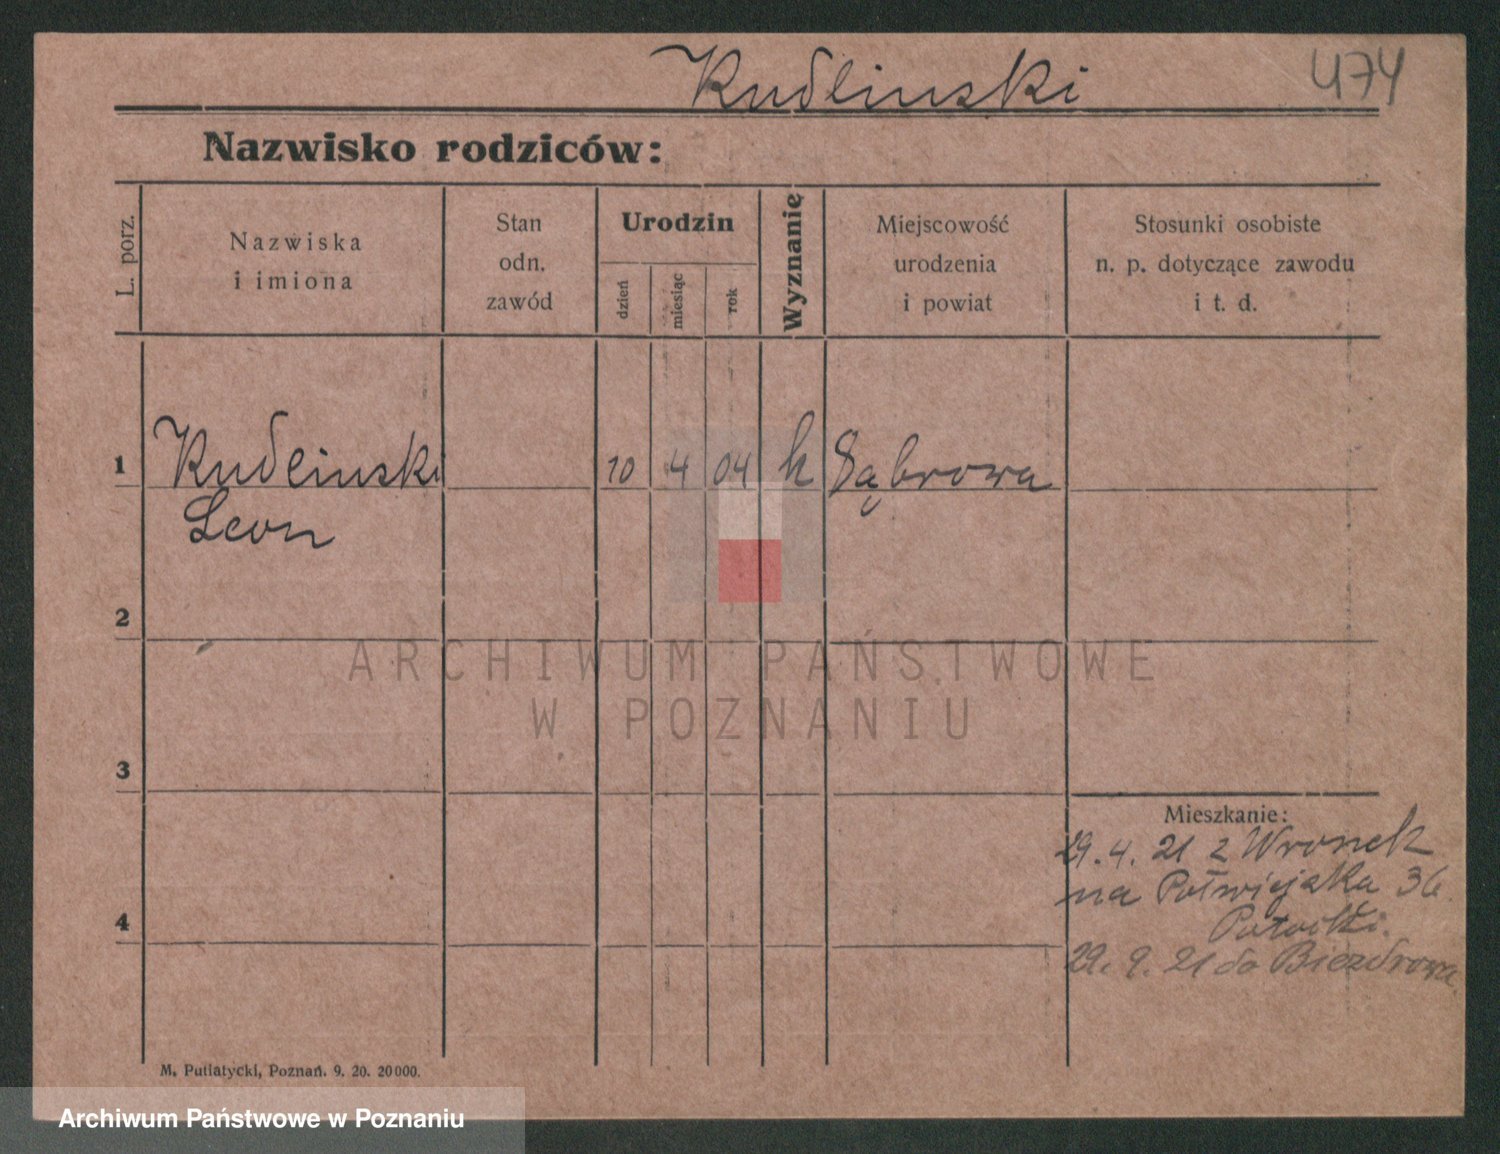 Kudlinski
474
Nazwisko rodziców:
L. porz.
Nazwiska
i imiona
Stan
odn.
zawód
Urodzin
dzień
miesiąc
rok
Wyznanię
Miejscowość
urodzenia
i powiat
Stosunki osobiste
n. p. dotyczące zawodu
i t. d.
1
Kudlinski
Leon
10
4
04
k
Dąbrowa
2
3
4
Mieszkanie:
29. 4. 21 z Wronek
na Półwiejska 36
29. 9. 21 do Biezdrowa
M. Putiatycki, Poznań. 9. 20. 20000.
ARCHIWUM PAŃSTWOWE
W POZNANIU
Archiwum Państwowe w Poznaniu